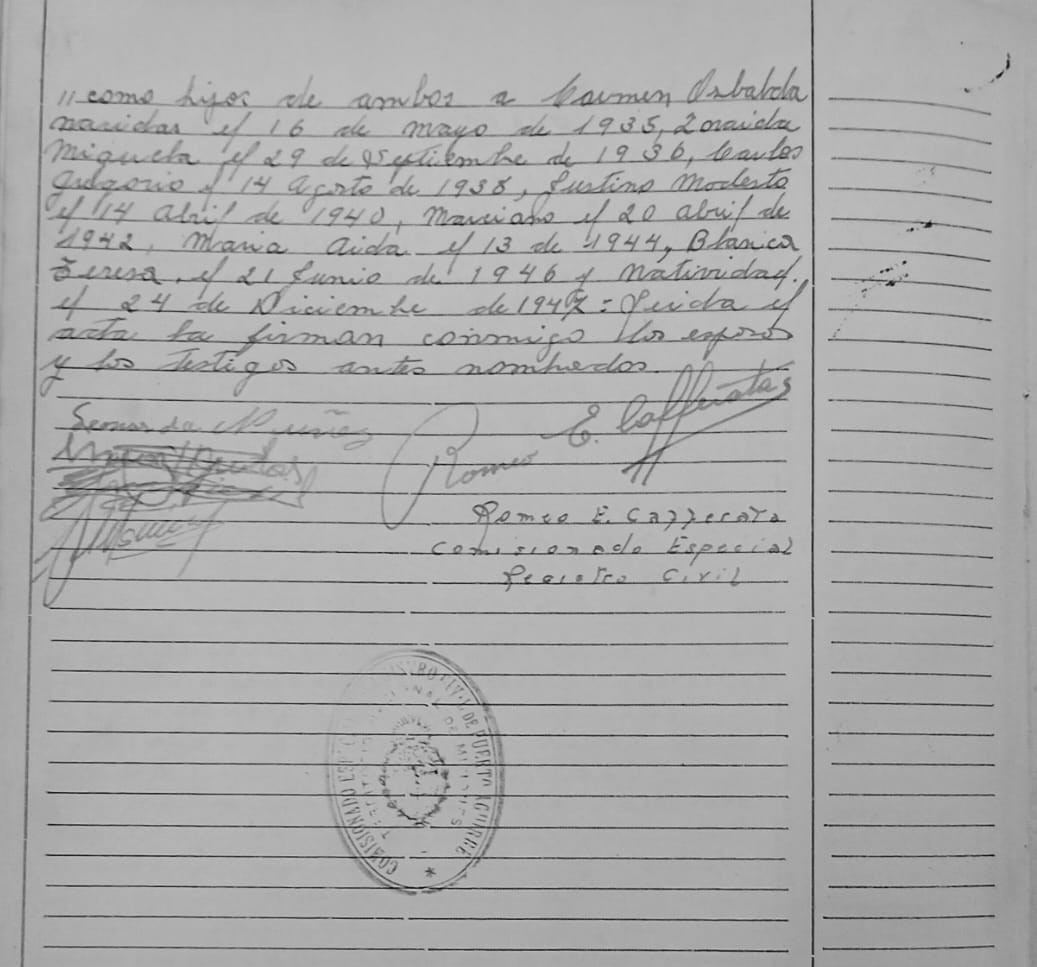 " como hijos de ambos a Carmen Osbalda
nacidas el 16 de mayo de 1935, Zoraida
Miguela el 29 de Septiembre de 1936, Carlos
Gregorio el 14 Agosto de 1938, Justino Modesto
el 14 Abril de 1940, Marciano el 20 abril de
1942, Maria Aida el 13 de 1944, Blanca
Teresa, el 21 Junio de 1946 y Natividad.
el 24 de Diciembre de 1947: Leida el
acta la firman conmigo los esposos
y los testigos antes nombrados.
Nuñez
Romeo E. Cafferatas
Romeo E. Cafferata
Comisionado Especial
Registro Civil
COMISIONADO ESPECIAL REGISTRO CIVIL DE PUERTO AGUIRRE
NACIONAL DE MISIONES